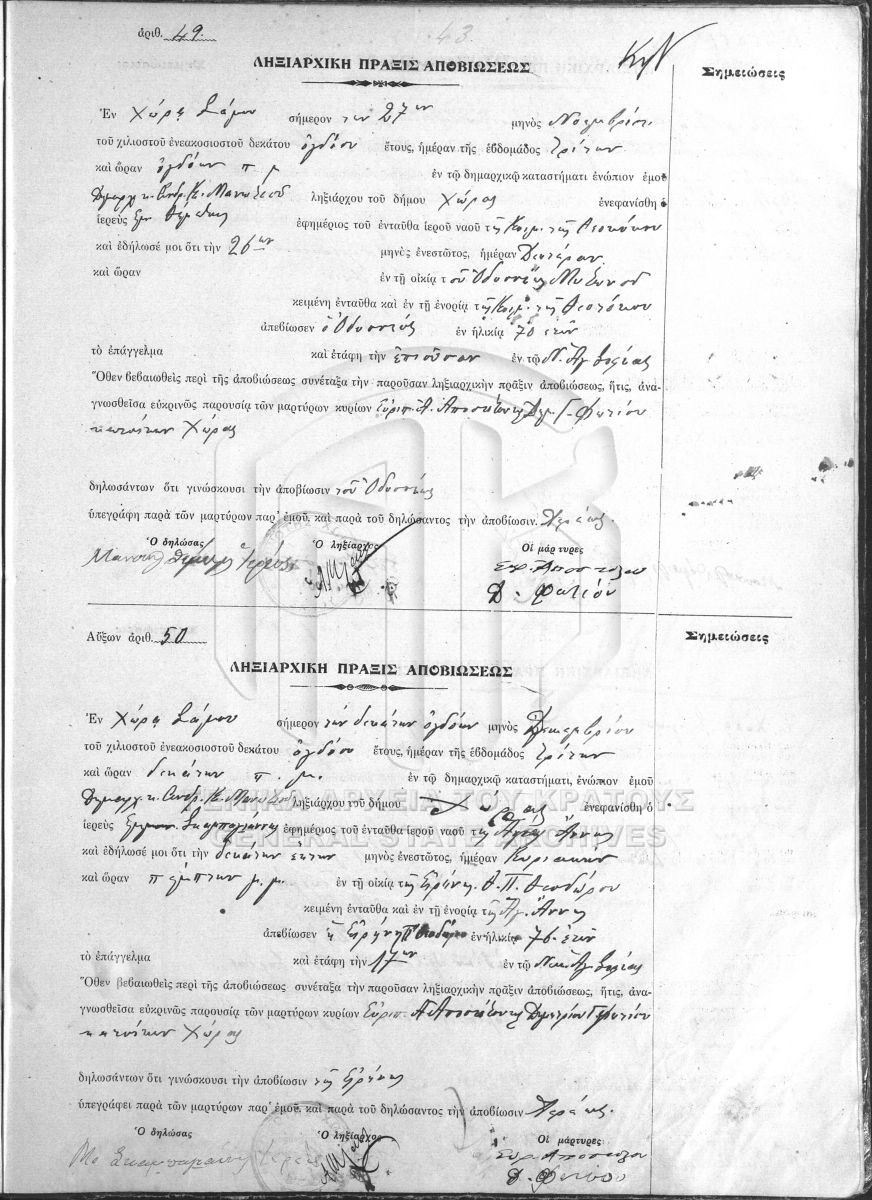 ἀριθ. 49.
43
ΛΗΞΙΑΡΧΙΚΗ ΠΡΑΞΙΣ ΑΠΟΒΙΩΣΕΩΣ
Σημειώσεις
Ἐν Χώρᾳ Σάμου σήμερον τὴν 27ην μηνὸς Νοεμβρίου
τοῦ χιλιοστοῦ ἐνεακοσιοστοῦ δεκάτου ὀγδόου ἔτους, ἡμέραν τῆς ἑβδομάδος Τρίτην
καὶ ὥραν ὀγδόην π μ ἐν τῷ δημαρχικῷ καταστήματι ἐνώπιον ἐμοῦ
ληξιάρχου τοῦ δήμου Χώρας ἐνεφανίσθη ὁ
ἱερεὺς ἐφημέριος τοῦ ἐνταῦθα ἱεροῦ ναοῦ τῆς Κοιμ. τῆς Θεοτόκου
καὶ ἐδήλωσέ μοι ὅτι τὴν 26ην μηνὸς ἐνεστῶτος, ἡμέραν Δευτέραν
καὶ ὥραν ἐν τῇ οἰκίᾳ τοῦ Ὀδυσσέως
κειμένῃ ἐνταῦθα καὶ ἐν τῇ ἐνορίᾳ τῆς Κοιμ. τῆς Θεοτόκου
ἀπεβίωσεν ὁ Ὀδυσσεύς ἐν ἡλικίᾳ 70 ἐτῶν
τὸ ἐπάγγελμα καὶ ἐτάφη τὴν ἐπιοῦσαν ἐν τῷ Ν. Ἁγ.
Ὅθεν βεβαιωθεὶς περὶ τῆς ἀποβιώσεως συνέταξα τὴν παροῦσαν ληξιαρχικὴν πρᾶξιν ἀποβιώσεως, ἥτις, ἀνα-
γνωσθεῖσα εὐκρινῶς παρουσίᾳ τῶν μαρτύρων κυρίων Φωτίου
κατοίκων Χώρας
δηλωσάντων ὅτι γινώσκουσι τὴν ἀποβίωσιν τοῦ Ὀδυσσέως
ὑπεγράφη παρὰ τῶν μαρτύρων παρ' ἐμοῦ, καὶ παρὰ τοῦ δηλώσαντος τὴν ἀποβίωσιν. Ἱερέως
Ὁ δηλώσας Ὁ ληξίαρχος Οἱ μάρτυρες
Δ. Φωτίου
Αὔξων ἀριθ. 50
Σημειώσεις
ΛΗΞΙΑΡΧΙΚΗ ΠΡΑΞΙΣ ΑΠΟΒΙΩΣΕΩΣ
Ἐν Χώρᾳ Σάμου σήμερον τὴν δεκάτην ὀγδόην μηνὸς Δεκεμβρίου
τοῦ χιλιοστοῦ ἐνεακοσιοστοῦ δεκάτου ὀγδόου ἔτους, ἡμέραν τῆς ἑβδομάδος Τρίτην
καὶ ὥραν δεκάτην π. μ. ἐν τῷ δημαρχικῷ καταστήματι, ἐνώπιον ἐμοῦ
ληξιάρχου τοῦ δήμου Χώρας ἐνεφανίσθη ὁ
ΓΕΝΙΚΑ ΑΡΧΕΙΑ ΤΟΥ ΚΡΑΤΟΥΣ
ἱερεὺς ἐφημέριος τοῦ ἐνταῦθα ἱεροῦ ναοῦ τῆς Ἁγίας Ἄννης
GENERAL STATE ARCHIVES
καὶ ἐδήλωσέ μοι ὅτι τὴν δεκάτην ἕκτην μηνὸς ἐνεστῶτος, ἡμέραν Κυριακήν
καὶ ὥραν πέμπτην μ. μ. ἐν τῇ οἰκίᾳ τῆς Εἰρήνης Θ. Π. Θεοδώρου
κειμένῃ ἐνταῦθα καὶ ἐν τῇ ἐνορίᾳ τῆς Ἁγ. Ἄννης
ἀπεβίωσεν ἡ Εἰρήνη ἐν ἡλικίᾳ 76 ἐτῶν
τὸ ἐπάγγελμα καὶ ἐτάφη τὴν 17ην ἐν τῷ
Ὅθεν βεβαιωθεὶς περὶ τῆς ἀποβιώσεως συνέταξα τὴν παροῦσαν ληξιαρχικὴν πρᾶξιν ἀποβιώσεως, ἥτις, ἀνα-
γνωσθεῖσα εὐκρινῶς παρουσίᾳ τῶν μαρτύρων κυρίων Δημητρίου Γ. Φωτίου
κατοίκων Χώρας
δηλωσάντων ὅτι γινώσκουσι τὴν ἀποβίωσιν τῆς Εἰρήνης
ὑπεγράφει παρὰ τῶν μαρτύρων παρ' ἐμοῦ, καὶ παρὰ τοῦ δηλώσαντος τὴν ἀποβίωσιν Ἱερέως
Ὁ δηλώσας Ὁ ληξίαρχος Οἱ μάρτυρες
Δ. Φωτίου